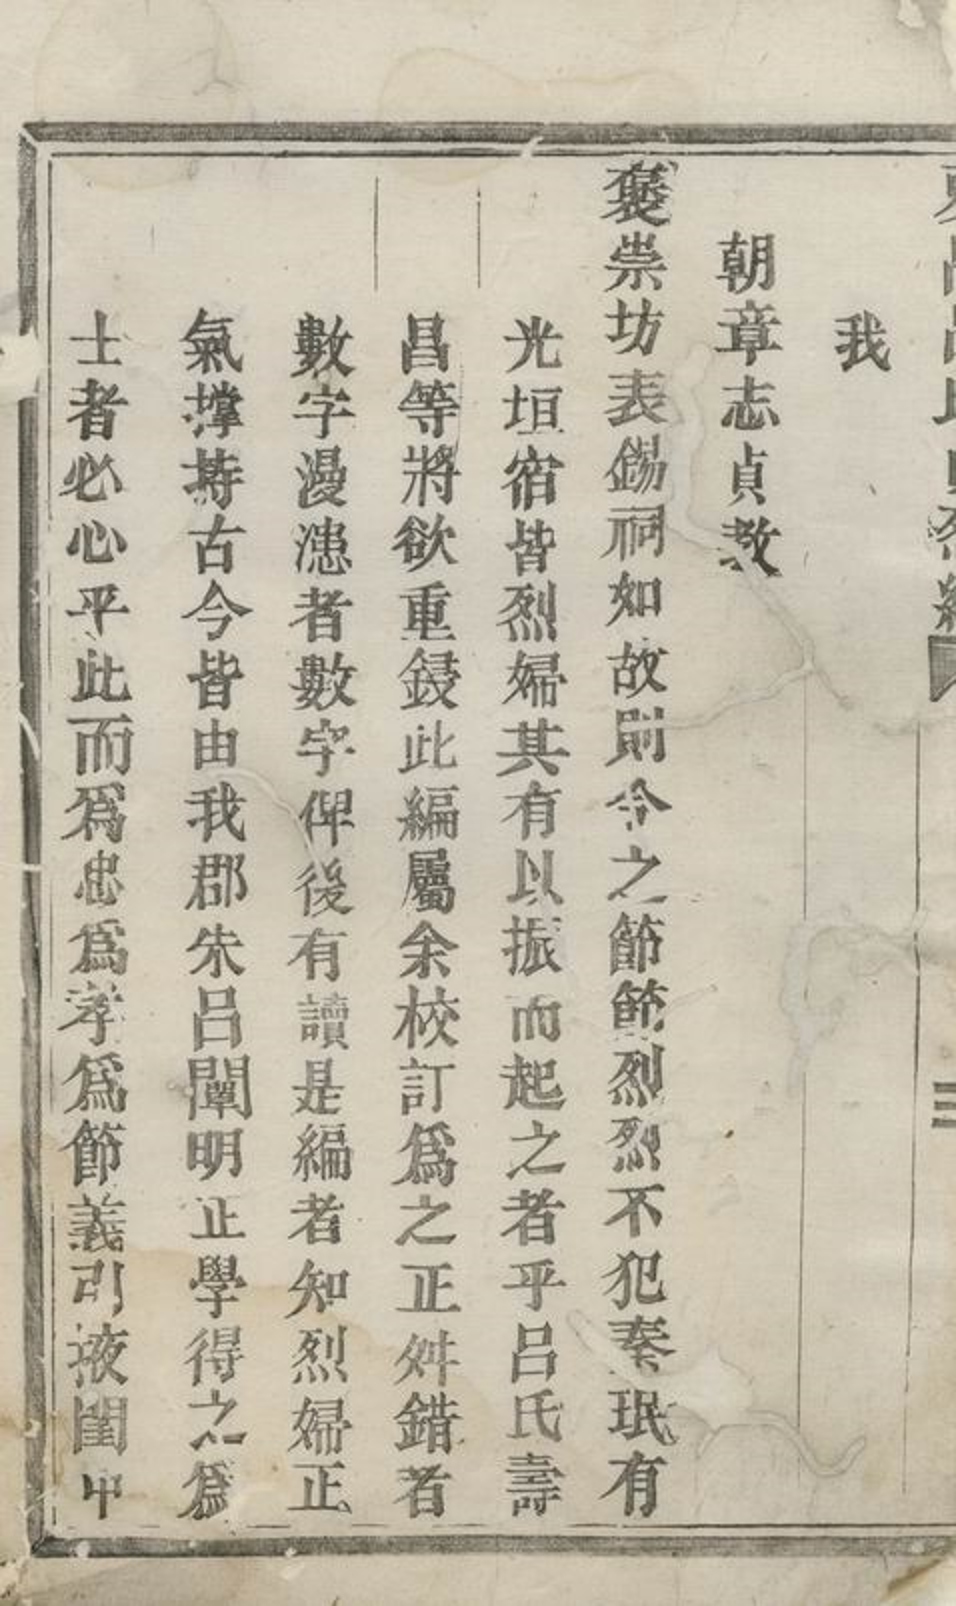 我
朝章志貞教
褒崇坊表錫祠如故則令之節節烈烈不犯秦珉有
光垣宿皆烈婦其有以振而起之者乎呂氏壽
昌等將欲重鋟此編屬余校訂爲之正舛錯者
數字漫漶者數字俾後有讀是編者知烈婦正
氣撐持古今皆由我郡朱呂闡明正學得之爲
士者必心平此而爲忠爲孝爲節義引掖閨中